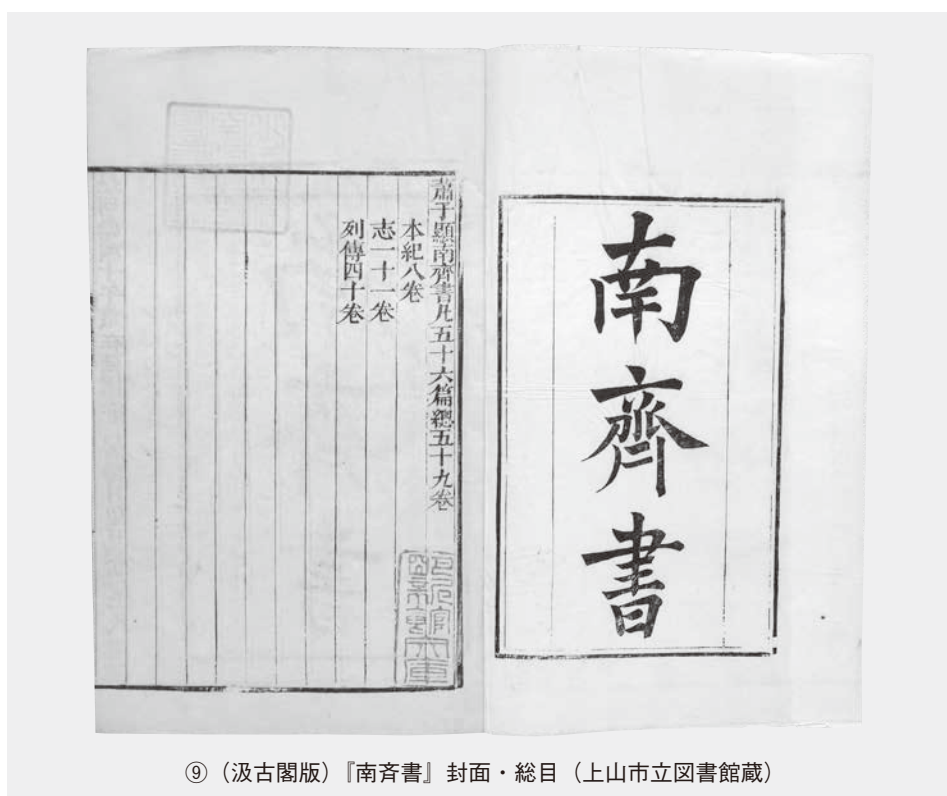 南齊書
蕭子顯南齊書凡五十六篇總五十九卷
本紀八卷
志一十一卷
列傳四十卷
⑨（汲古閣版）『南斉書』封面・総目（上山市立図書館蔵）